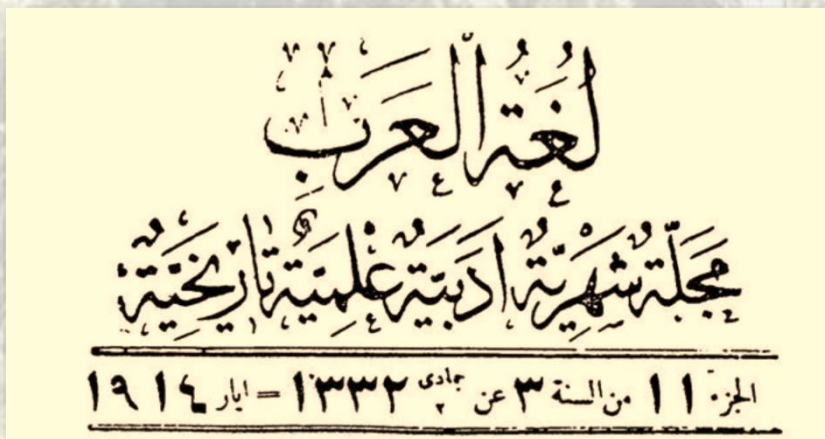 لُغَةُ الْعَرَبِ
مَجَلَّةٌ شَهْرِيَّةٌ أَدَبِيَّةٌ عِلْمِيَّةٌ تَارِيخِيَّةٌ
الجزء ١١ من السنة ٣ عن جمادى ٢ ١٣٣٢ = ايار ١٩١٤